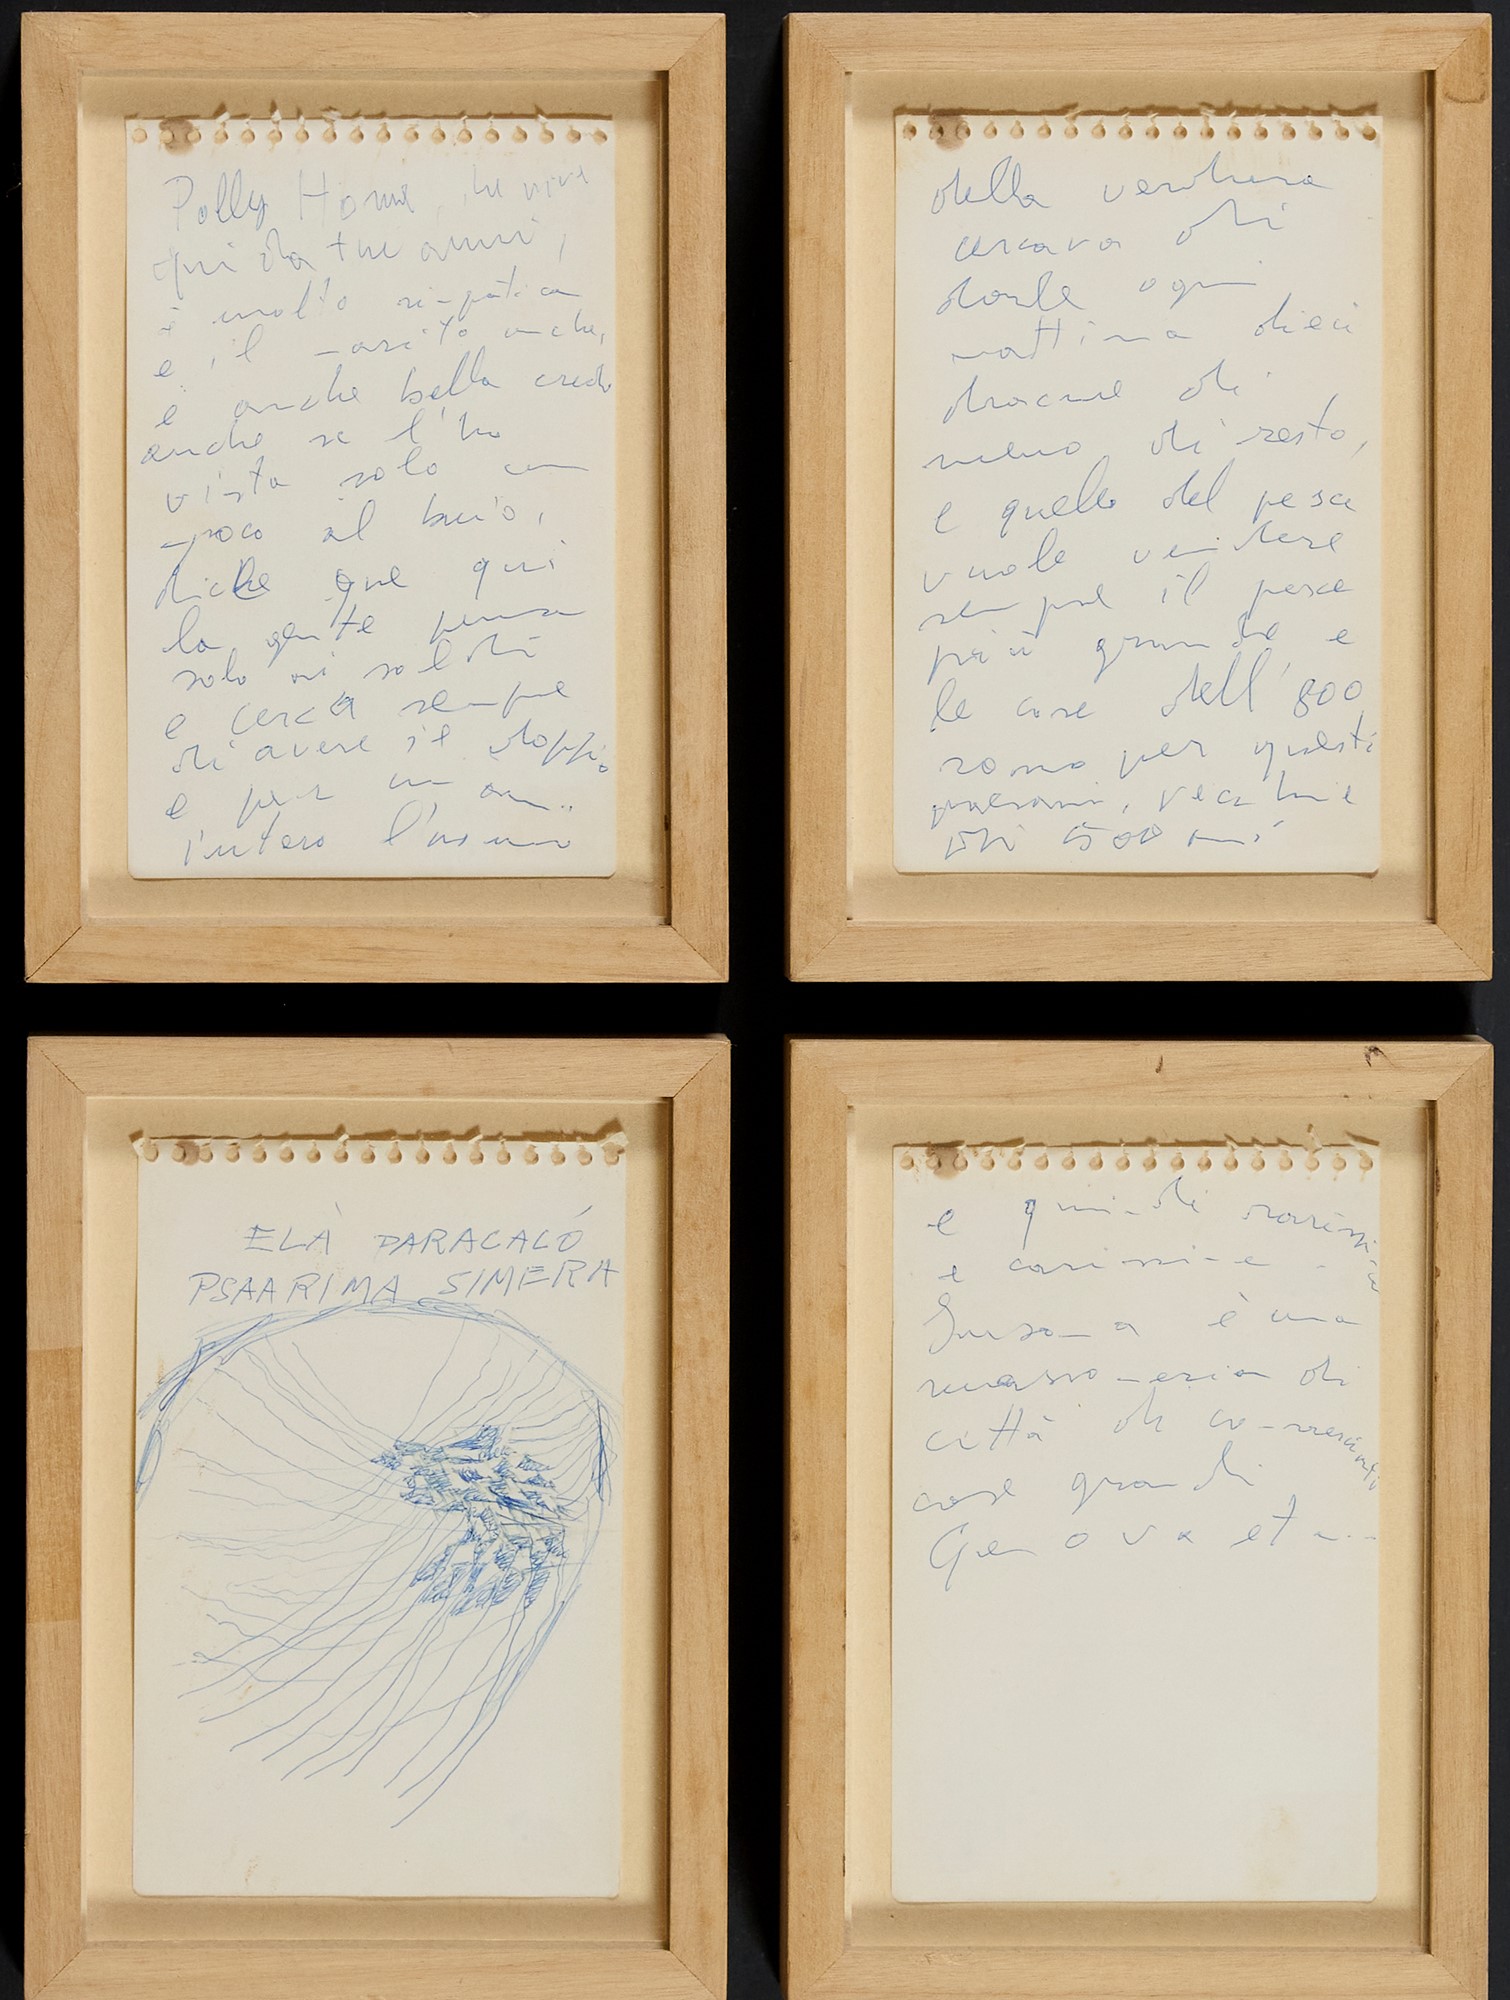 Polly Home, che vive
qui da tre anni,
è molto simpatica
e il marito anche,
è anche bella credo
anche se l'ho
vista solo un
poco al buio,
dice que qui
la gente pensa
solo ai soldi
e cerca sempre
di avere il doppio
e per un
intero l'uomo
della verdura
cercava di
darle ogni
mattina dieci
dracme di
meno di resto,
e quello del pesce
vuole vendere
sempre il pesce
più grande e
le case dell'800
sono per questi
paesani, vecchie
di 500 anni
ELÀ PARACALÓ
PSAARIMA SIMERA
e quindi rarissime
e carissime.
è una
di
città di
case grandi
Genova